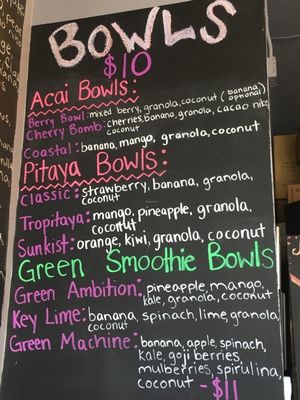 BOWLS
$10
Acai Bowls:
Berry Bowl: mixed berry, granola, coconut (banana optional)
Cherry Bomb: cherries, banana, granola, cacao nibs
coconut
Coastal: banana, mango, granola, coconut
Pitaya Bowls:
Classic: strawberry, banana, granola,
coconut
Tropitaya: mango, pineapple, granola,
coconut
Sunkist: orange, kiwi, granola, coconut
Green Smoothie Bowls
Green Ambition: pineapple, mango,
kale, granola, coconut
Key Lime: banana, spinach, lime, granola
coconut
Green Machine: banana, apple, spinach,
kale, goji berries,
mulberries, spirulina,
coconut - $11